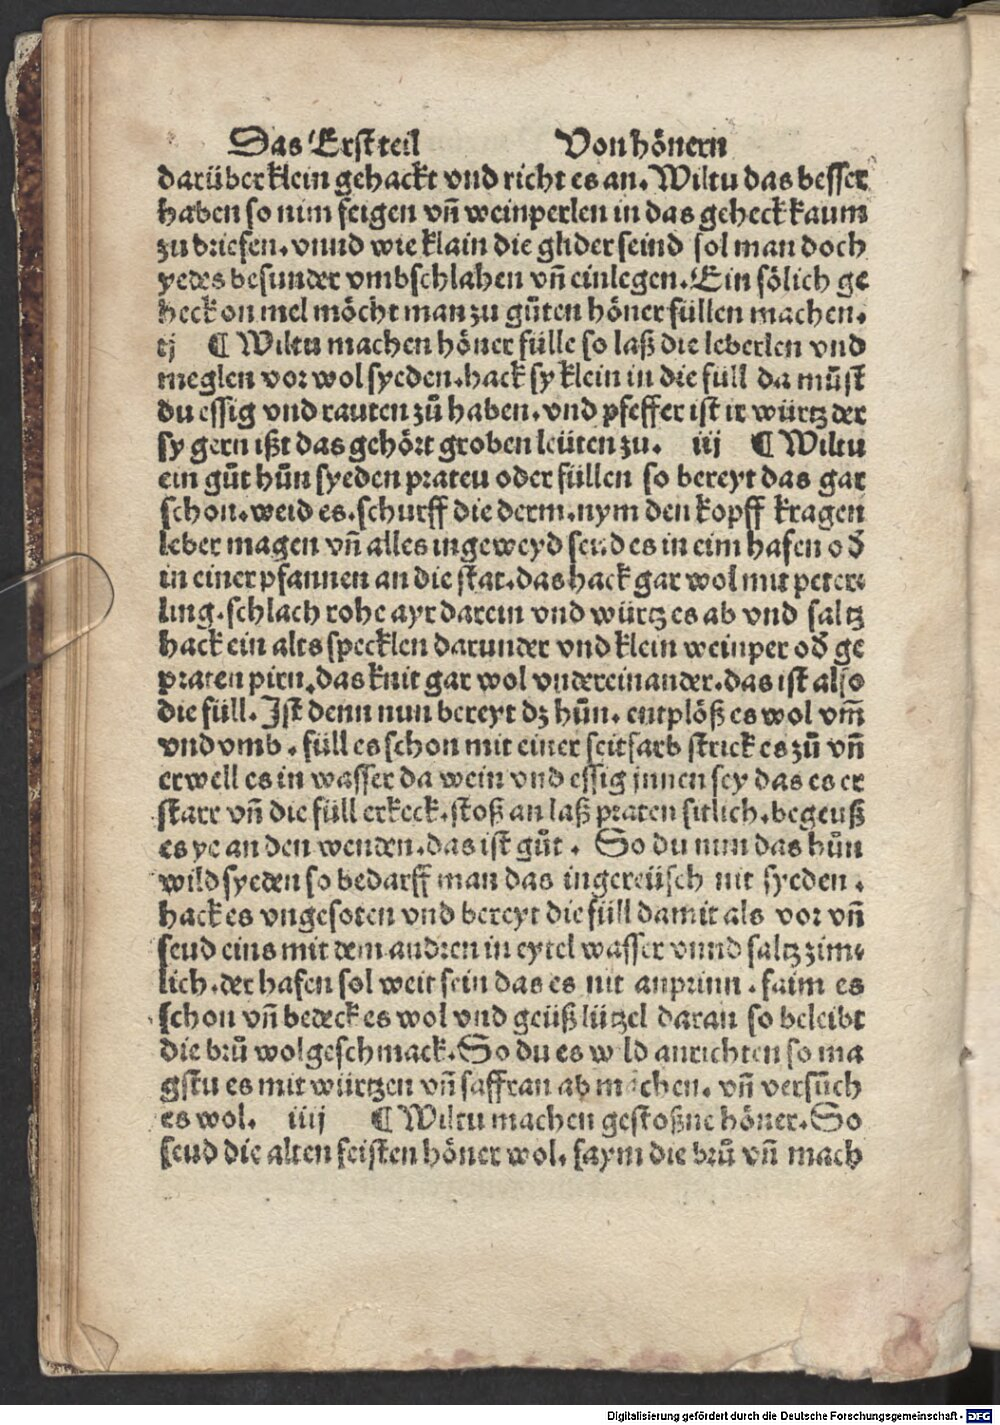 Das Erst teil Von hönern
darüber klein gehackt vnd richt es an. Wiltu das besser
haben so nim feigen vñ weinperlen in das geheck kaum
zu briefen. vnnd wie klain die glider seind sol man doch
yedes besunder vmbschlahen vñ einlegen. Ein sölich ge
heck on mel möcht man zu gůten höner füllen machen.
ij ¶ Wiltu machen höner fülle so laß die leberlen vnd
meglen vor wol syeden. hack sy klein in die füll da můst
du essig vnd rauten zů haben. vnd pfeffer ist ir würtz der
sy gern ißt das gehört groben leüten zu. iij ¶ Wiltu
ein gůt hůn syeden praten oder füllen so bereyt das gar
schon. weid es. schürff die derm. nym den kopff kragen
leber magen vñ alles ingeweyd seud es in eim hafen oď
in einer pfannen an die stat. das hack gar wol mit peter⸗
ling. schlach rohe ayr darein vnd würtz es ab vnd saltz
hack ein alts specklen darunder vnd klein weinper oď ge
praten pirn. das knit gar wol vndereinander. das ist also
die füll. Ist denn nun bereyt dz hůn. entplöß es wol vm̃
vnd vmb. füll es schon mit einer seitfarb strick es zů vñ
erwell es in wasser da wein vnd essig jnnen sey das es er
starr vñ die füll erkeck. stoß an laß praten sitlich. begeuß
es ye an den wenden. das ist gůt. So du nun das hůn
wild syeden so bedarff man das ingereüsch nit syeden.
hack es vngesoten vnd bereyt die füll damit als vor vñ
seud eins mit dem andren in eytel wasser vnnd saltz zim⸗
lich. der hafen sol weit sein das es nit anprinn. faim es
schon vñ bedeck es wol vnd geüß lützel daran so beleibt
die brů wolgeschmack. So du es wild anrichten so ma
gstu es mit würtzen vñ saffran ab machen. vñ versůch
es wol. iiij ¶ Wiltu machen gestoßne höner. So
seud die alten feisten höner wol. faym die brů vñ mach
Digitalisierung gefördert durch die Deutsche Forschungsgemeinschaft - DFG